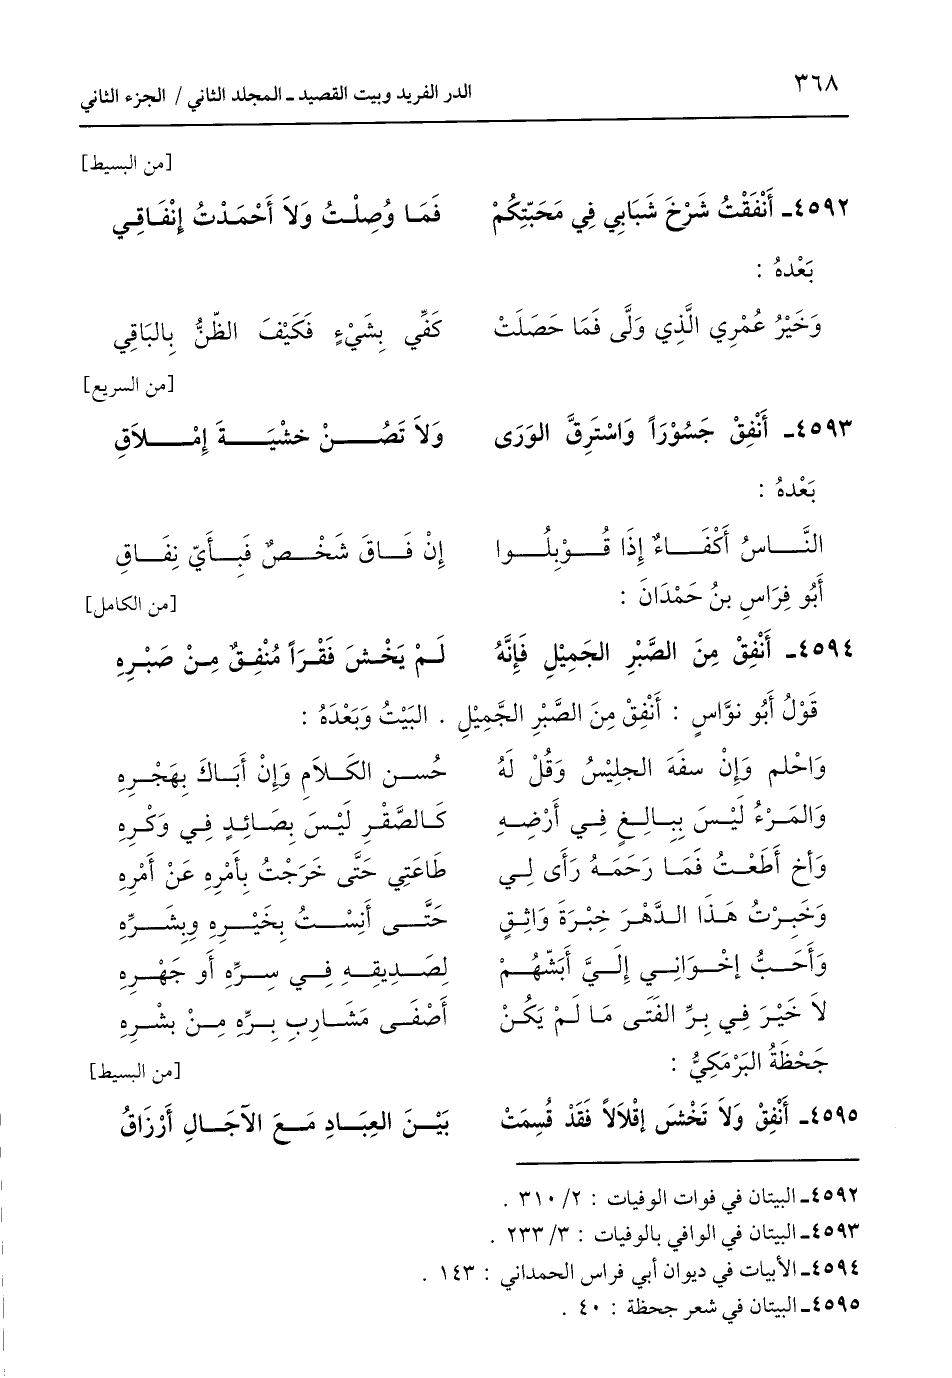 ٣٦٨
الدر الفريد وبيت القصيد ـ المجلد الثاني / الجزء الثاني
[من البسيط]
٤٥٩٢ـ أَنْفَقْتُ شَرْخَ شَبَابِي فِي مَحَبَّتِكُمْ فَمَا وُصِلْتُ وَلاَ أَحْمَدْتُ إِنْفَاقِي
بَعْدهُ :
وَخَيْرُ عُمْرِي الَّذِي وَلَّى فَمَا حَصَلَتْ كَفِّي بِشَيْءٍ فَكَيْفَ الظّنُّ بِالبَاقِي
[من السريع]
٤٥٩٣ـ أَنْفِقْ جَسُوْرَاً وَاسْتَرِقَّ الوَرَى وَلاَ تَصُنْ خشْيَةَ إِمْلاَقِ
بَعْدهُ :
النَّاسُ أَكْفَاءٌ إِذَا قُوْبِلُوا إِنْ فَاقَ شَخْصٌ فَبِأَيّ نِفَاقِ
أَبُو فِرَاسِ بنُ حَمْدَانَ :
[من الكامل]
٤٥٩٤ـ أَنْفِقْ مِنَ الصَّبْرِ الجَمِيْلِ فَإِنَّهُ لَمْ يَخْشَ فَقْرَاً مُنْفِقٌ مِنْ صَبْرِهِ
قَوْلُ أَبُو نوَّاسٍ : أَنْفِقْ مِنَ الصَّبْرِ الجَّمِيْلِ . البَيْتُ وَبَعْدَهُ :
وَاحْلم وَإِنْ سفَهَ الجلِيْسُ وَقُلْ لَهُ حُسن الكَلاَمِ وَإِنْ أَبَاكَ بِهَجْرِهِ
وَالمَرْءُ لَيْسَ بِبَالِغٍ فِي أَرْضِهِ كَالصَّقْرِ لَيْسَ بِصَائِدٍ فِي وَكْرِهِ
وَأخٍ أَطَعْتُ فَمَا رَحَمَهُ رَأَى لِي طَاعَتِي حَتَّى خَرَجْتُ بِأَمْرِهِ عَنْ أَمْرِهِ
وَخَبِرْتُ هَذَا الدَّهْرَ خِبْرَةَ وَاثِقٍ حَتَّى أَنِسْتُ بِخَيْرِهِ وبِشَرِّهِ
وَأَحَبُّ إِخْوَانِي إِلَيَّ أَبَشّهُمْ لِصَدِيقِهِ فِي سِرِّهِ أَو جَهْرِهِ
لاَ خَيْرَ فِي بِرِّ الفَتَى مَا لَمْ يَكُنْ أَصْفَى مَشَارِبِ بِرِّهِ مِنْ بِشْرِهِ
جَحْظَةُ البَرْمَكِيُّ :
[من البسيط]
٤٥٩٥ـ أَنْفِقْ وَلاَ تَخْشَ إِقْلاَلاً فَقَدْ قُسِمَتْ بَيْنَ العِبَادِ مَعَ الآجَالِ أَرْزَاقُ
٤٥٩٢ـ البيتان في فوات الوفيات : ٢/ ٣١٠ .
٤٥٩٣ـ البيتان في الوافي بالوفيات : ٣/ ٢٣٣ .
٤٥٩٤ـ الأبيات في ديوان أبي فراس الحمداني : ١٤٣ .
٤٥٩٥ـ البيتان في شعر جحظة : ٤٠ .